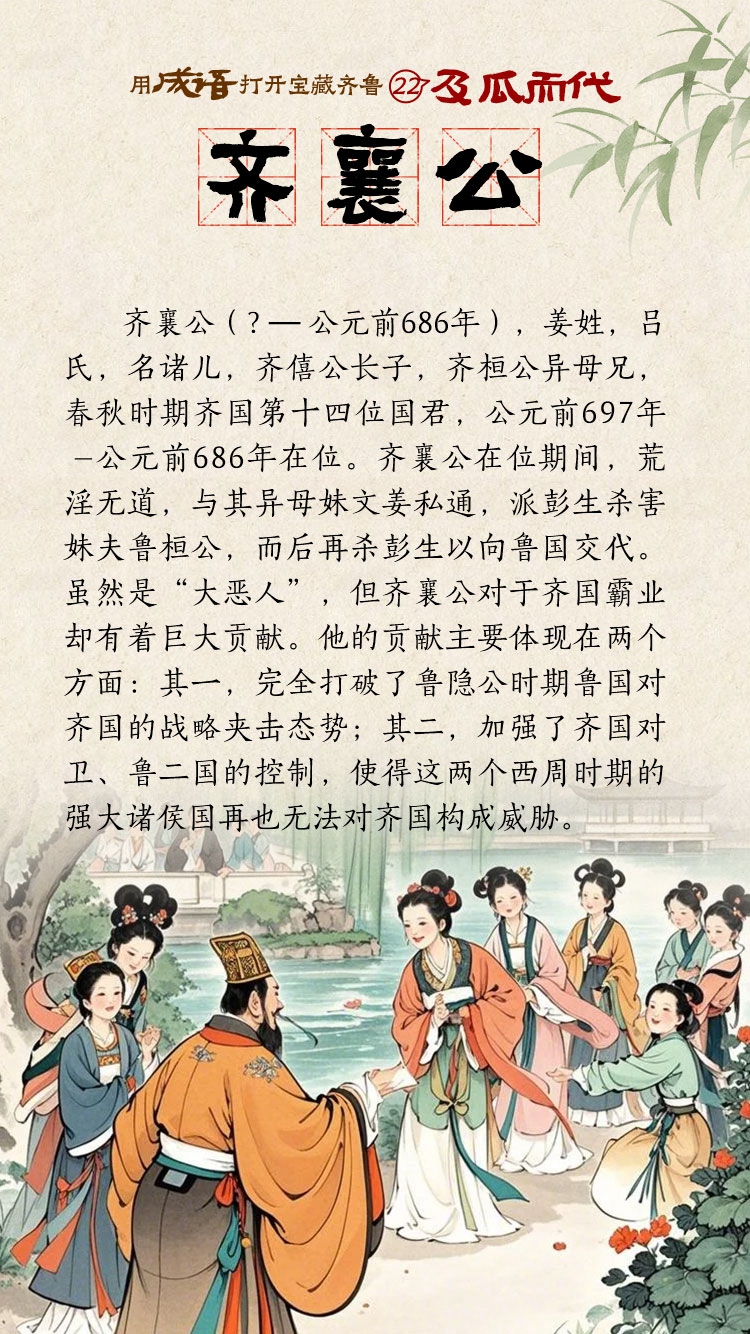 用成语打开宝藏齐鲁㉒及瓜而代
齐襄公
齐襄公（?—公元前686年），姜姓，吕
氏，名诸儿，齐僖公长子，齐桓公异母兄，
春秋时期齐国第十四位国君，公元前697年
–公元前686年在位。齐襄公在位期间，荒
淫无道，与其异母妹文姜私通，派彭生杀害
妹夫鲁桓公，而后再杀彭生以向鲁国交代。
虽然是“大恶人”，但齐襄公对于齐国霸业
却有着巨大贡献。他的贡献主要体现在两个
方面：其一，完全打破了鲁隐公时期鲁国对
齐国的战略夹击态势；其二，加强了齐国对
卫、鲁二国的控制，使得这两个西周时期的
强大诸侯国再也无法对齐国构成威胁。